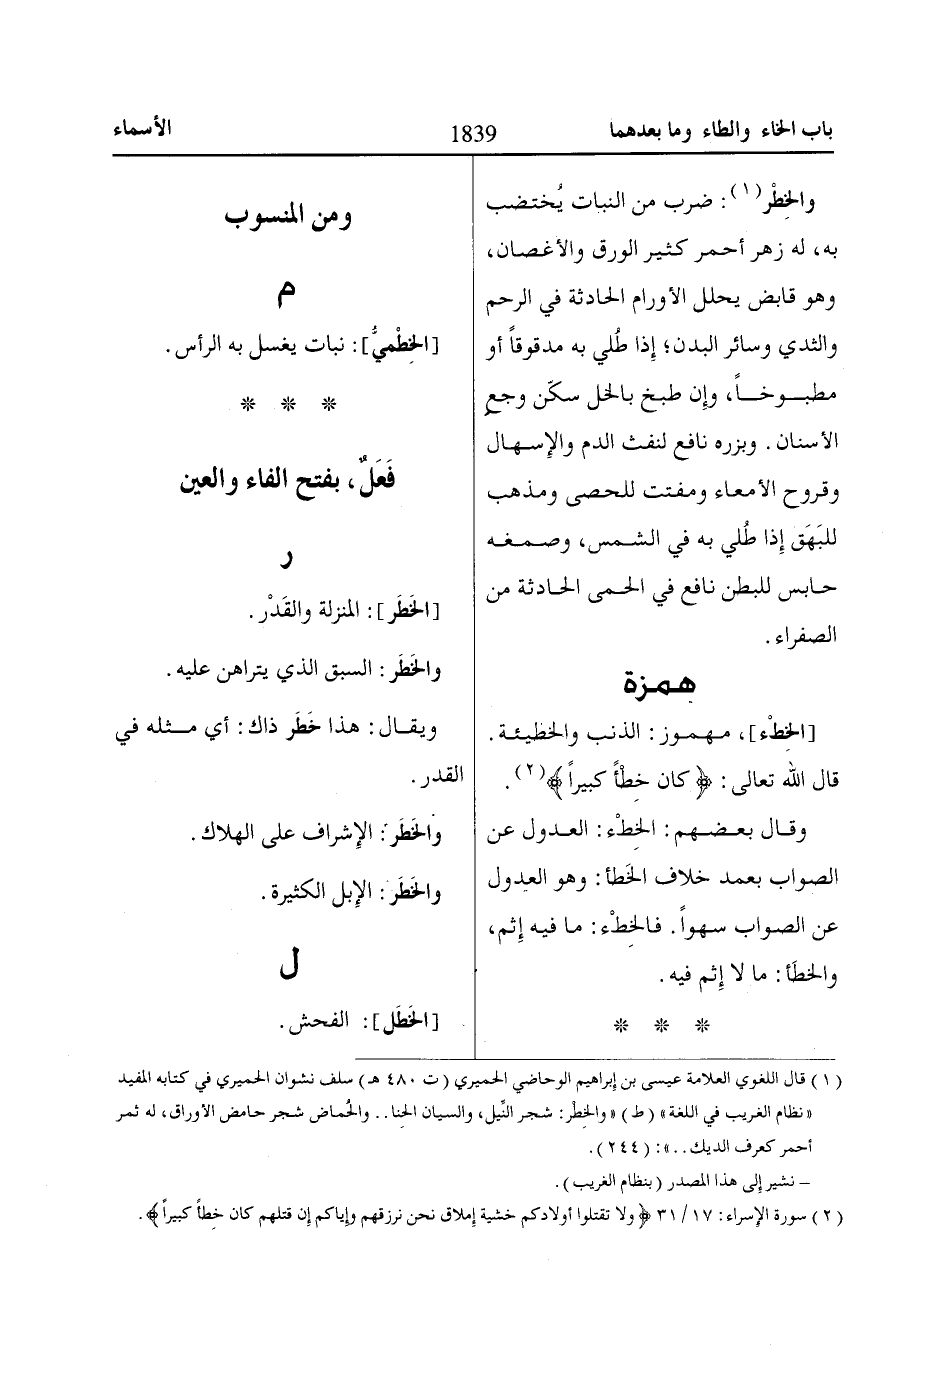 باب الخاء والطاء وما بعدهما 1839 الأسماء
والخِطْر(١): ضرب من النبات يُختضب
به، له زهر أحمر كثير الورق والأغصان،
وهو قابض يحلل الأورام الحادثة في الرحم
والثدي وسائر البدن؛ إذا طُلي به مدقوقاً أو
مطبوخاً، وإن طبخ بالخل سكّن وجع
الأسنان. وبزره نافع لنفث الدم والإسهال
وقروح الأمعاء ومفتت للحصى ومذهب
للبَهَق إذا طُلي به في الشمس، وصمغه
حابس للبطن نافع في الحمى الحادثة من
الصفراء.
همزة
[الخِطْء]، مهموز: الذنب والخطيئة.
قال الله تعالى: ﴿كان خِطْأً كبيراً﴾(٢).
وقال بعضهم: الخِطْء: العدول عن
الصواب بعمد خلاف الخَطأ: وهو العدول
عن الصواب سهواً. فالخِطْء: ما فيه إثم،
والخَطَأ: ما لا إثم فيه.
* * *
ومن المنسوب
م
[الخِطْميُّ]: نبات يغسل به الرأس.
* * *
فَعَلٌ، بفتح الفاء والعين
ر
[الخَطَر]: المنزلة والقَدْر.
والخَطَر: السبق الذي يتراهن عليه.
ويقال: هذا خَطَر ذاك: أي مثله في
القدر.
والخَطَر: الإشراف على الهلاك.
والخَطَر: الإبل الكثيرة.
ل
[الخَطَل]: الفحش.
(١) قال اللغوي العلامة عيسى بن إبراهيم الوحاضي الحميري (ت ٤٨٠ هـ) سلف نشوان الحميري في كتابه المفيد
«نظام الغريب في اللغة» (ط) «والخِطْر: شجر النِّيل، والسيان الحنا.. والحُماض شجر حامض الأوراق، له ثمر
أحمر كعرف الديك..»: (٢٤٤).
– نشير إلى هذا المصدر (بنظام الغريب).
(٢) سورة الإسراء: ١٧/ ٣١ ﴿ولا تقتلوا أولادكم خشية إملاق نحن نرزقهم وإياكم إن قتلهم كان خِطأً كبيراً﴾.